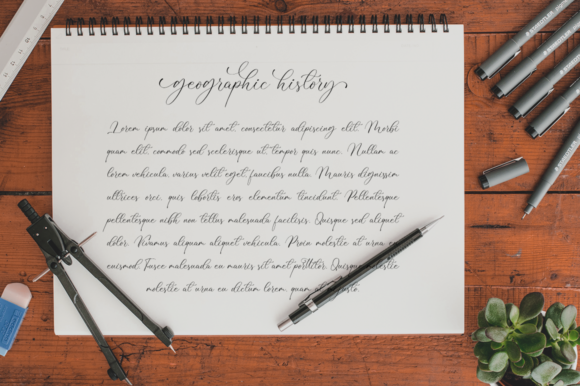 geographic history
Lorem ipsum dolor sit amet, consectetur adipiscing elit. Morbi
quam elit, commodo sed scelerisque at, tempor quis nunc. Nullam ac
lorem vehicula, varius velit eget, faucibus nulla. Mauris dignissim
ultrices orci, quis lobortis eros elementum tincidunt. Pellentesque
pellentesque nibh non tellus malesuada facilisis. Quisque sed aliquet
dolor. Vivamus aliquam aliquet vehicula. Proin molestie at urna eu
euismod. Fusce malesuada eu mauris sit amet porttitor. Quisque molestie
molestie at urna eu dictum lorem, quam at justo.